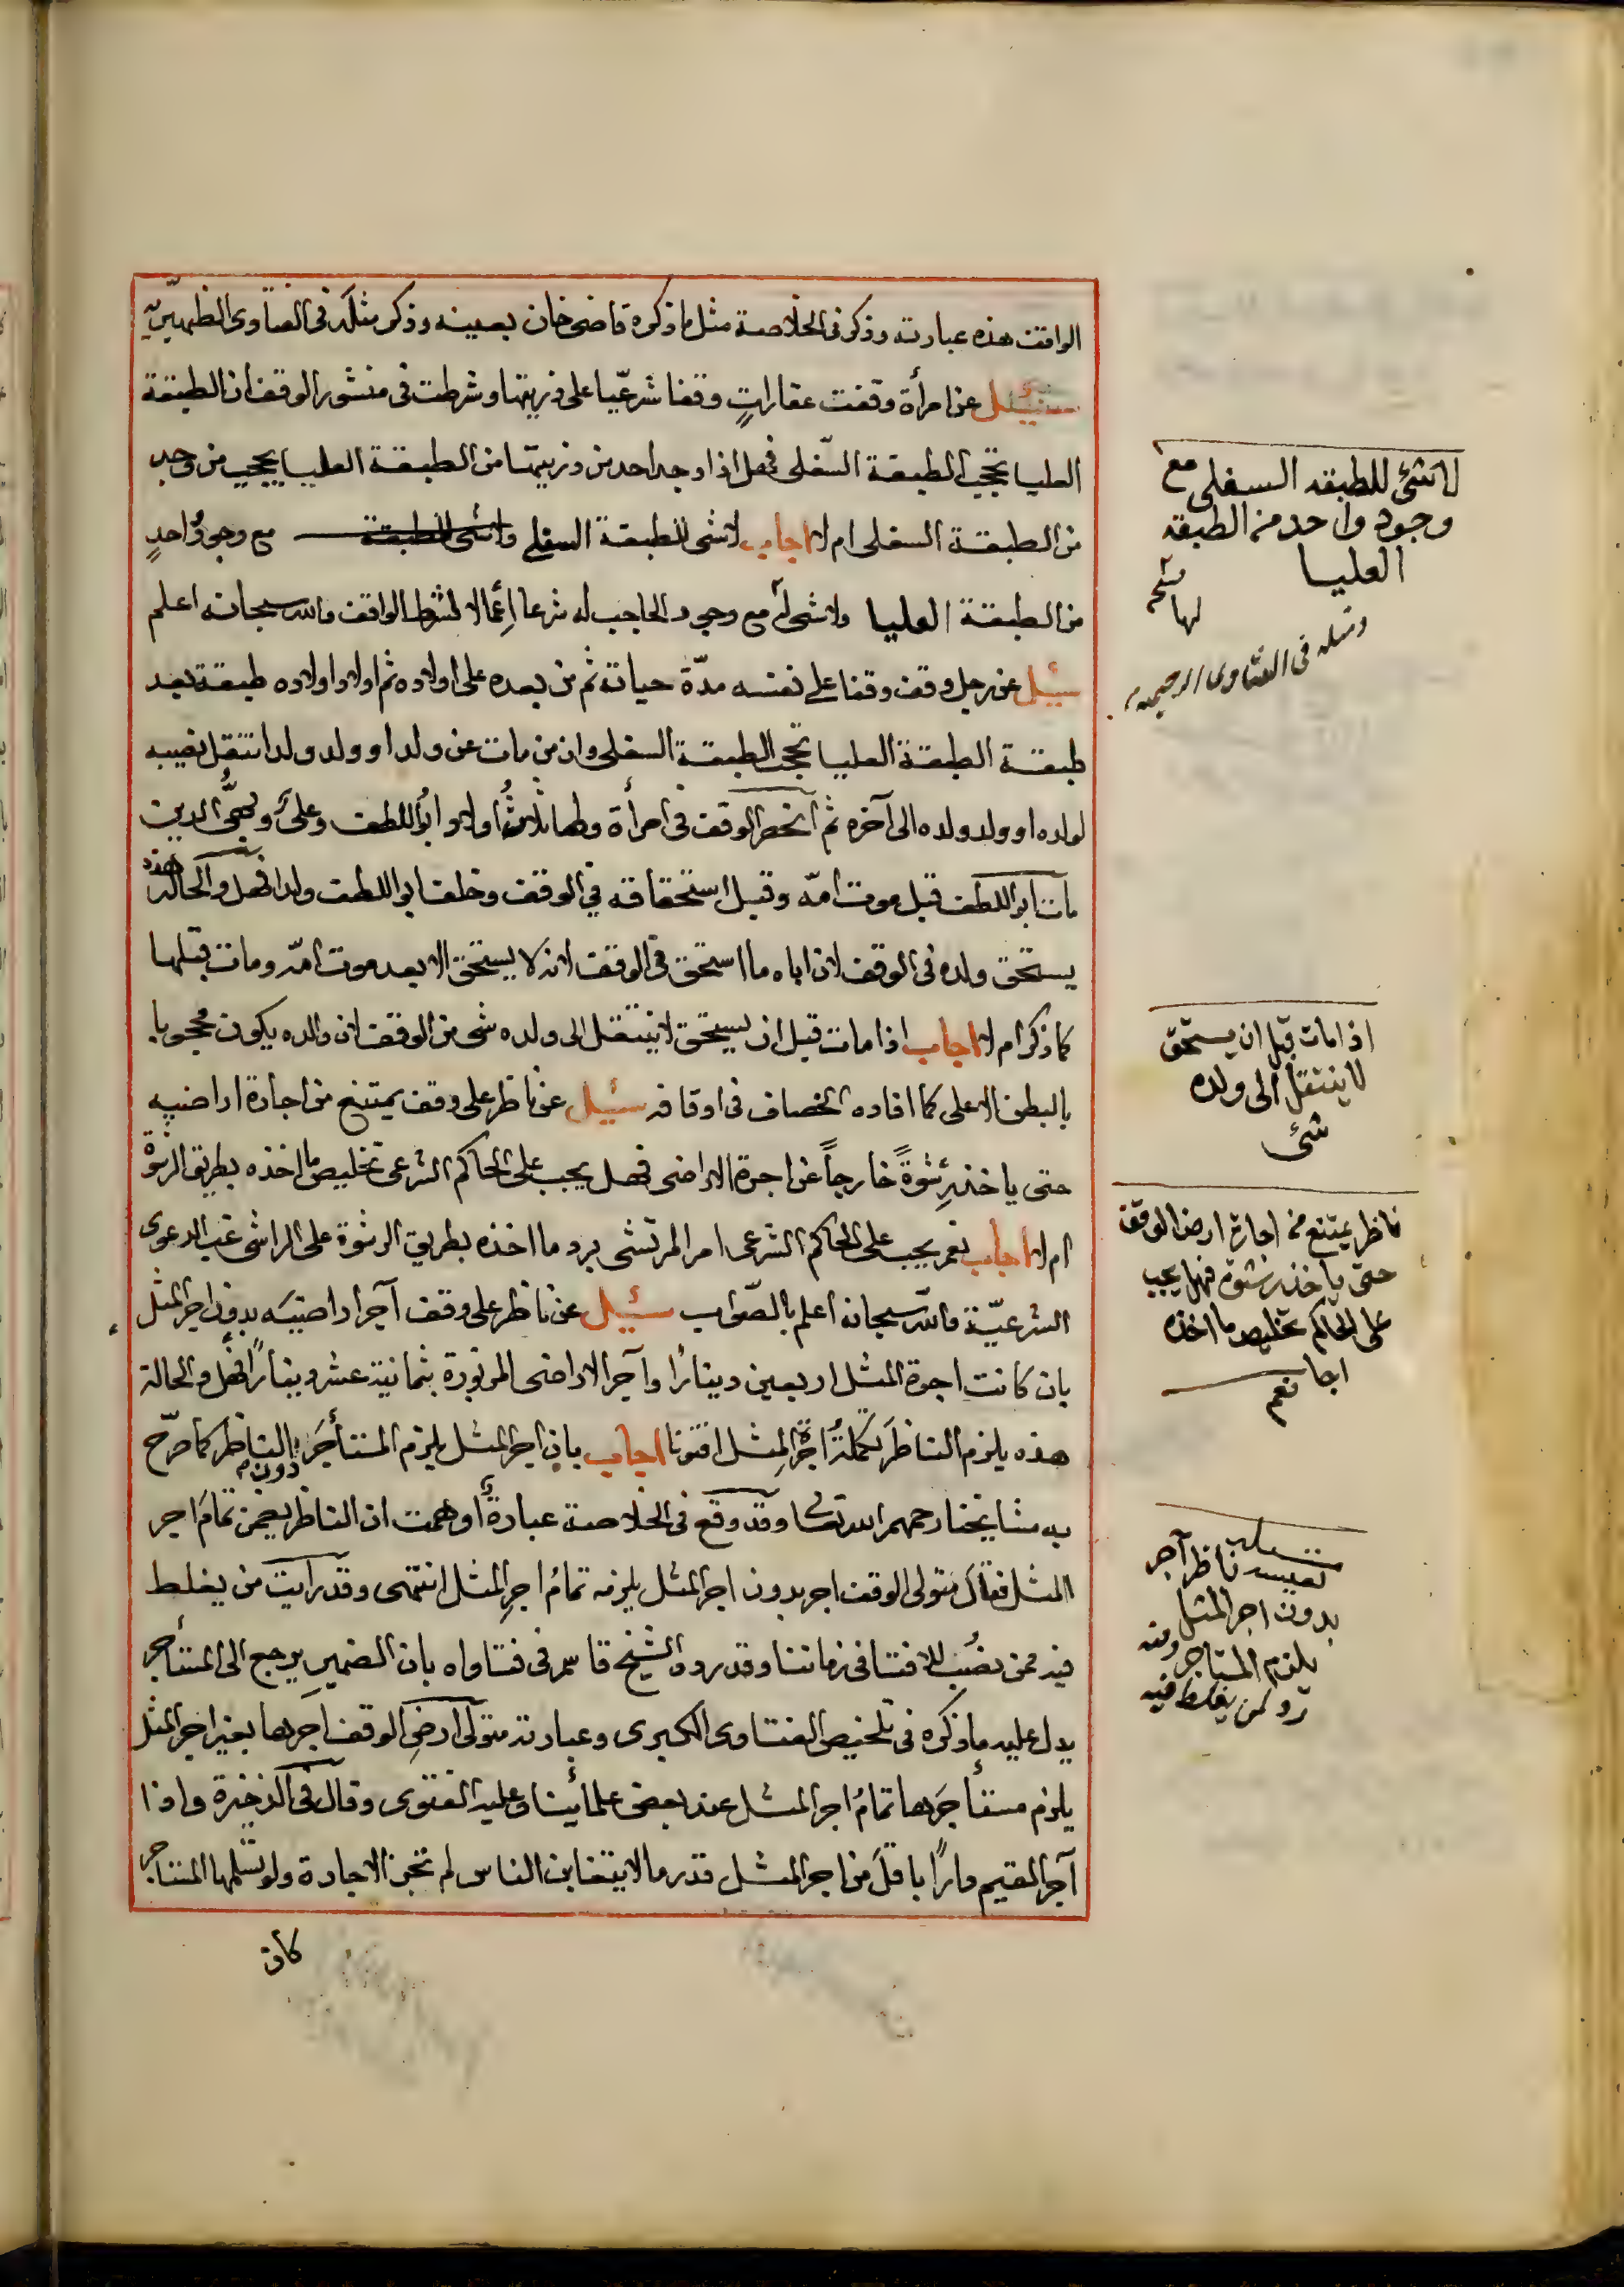 الواقف هذه عبارته وذكر في الخلاصة مثل ما ذكره قاضي خان بعينه وذكر مثله في الفتاوى الظهيريّة
سئيل عن امرأة وقفت عقاراتٍ وقفا شرعيّا على ذريتها وشرطت في منشور الوقف ان الطبقة
العليا تحجب الطبقة السّفلى فهل اذا وجد احد من ذريتها من الطبقة العليا يحجب من وجد
من الطبقة السفلى ام لا اجاب لا شئ للطبقة السفلى ولا شئ للطبقة مع وجود واحدٍ
من الطبقة العليا ولا شئ له مع وجود الحاجب له شرعا اعمالا لشرط الواقف والله سبحانه اعلم
سئيل عن رجل وقف وقفا على نفسه مدّة حياته ثم من بعده على اولاده ثم اولاد اولاده طبقة بعد
طبقة الطبقة العليا تحجب الطبقة السفلى وان من مات عن ولد او ولد ولد انتقل نصيبه
لولده او ولد ولده الى آخره ثم انحصر الوقف في امرأة ولها ثلاثُ اولاد ابُو اللطف وعلىُّ ومحىُّ الدين
مات ابو اللطف قبل موت امّه وقبل استحقاقه في الوقف وخلف ابو اللطف ولدا فهل والحالة هذه
يستحق ولده في الوقف لان اباه ما استحق في الوقف لانه لا يستحق الا بعد موت امّه ومات قبلها
كما ذكر ام لا اجاب اذا مات قبل ان يستحق لا ينتقل الى ولده شئ من الوقف لان والده يكون محجوبا
بالبطن الاعلى كما افاده الخصاف في اوقافه سئيل عن ناظر على وقف يمتنع من اجارة اراضيه
حتى ياخذ رِشوةً خارجاً عن اجرة الاراضى فهل يجب على الحاكم الشرعى تخليص ما اخذه بطريق الرشوة
ام لا اجاب نعم يجب على الحاكم الشرعى امر المرتشى برد ما اخذه بطريق الرشوة على الراشى غب الدعوى
الشرعيّة والله سبحانه اعلم بالصّواب سئيل عن ناظر على وقف آجر اراضيَه بدون اجر المثل
بان كانت اجرة المثل اربعين دينارًا وآجر الاراضى المزبورة بثمانية عشر دينارًا فهل والحالة
هذه يلزم الناظر تكملةُ اجرة المِثل افتونا اجاب بان اجر المثل يلزم المستأجَر دون الناظر كما صرّح
به مشايخنا رحمهم الله تعالى وقد وقع في الخلاصة عبارةٌ اوهمت ان الناظر يضمن تمامَ اجر
المثل فقال متولى الوقف اجر بدون اجر المثل يلزمه تمامُ اجرِ المثل انتهى وقد رايت من يغلط
فيه ممن نصُب للافتا في زماننا وقد رده الشيخ قاسم في فتاواه بان الضمير يرجع الى المستأجر
يدل عليه ما ذكره في تلخيص الفتاوى الكبرى وعبارته متولى ارضِ الوقف اجرها بغير اجر المثل
يلزم مستأجرَها تمامُ اجر المثل عند بعض علمائنا وعليه الفتوى وقال في الذخيرة واذا
آجر القيم دارًا باقلَ من اجر المثل قدر ما لا يتغابن الناس لم تجز الاجارة ولو تسلمها المستاجر
كان
لا شئ للطبقه السفلى مع
وجود واحد من الطبقه
العليا
ومثله في الفتاوى الرحيميه
اذا مات قبل ان يستحق
لا ينتقل الى ولده
شئ
ناظر يمتنع من اجارة ارض الوقف
حتى ياخذ رشوة فهل يجب
على الحاكم تخليص ما اخذه
اجا نعم
ناظر آجر
بدون اجر المثل
يلزم المستاجر وفيه
رد لمن يغلط فيه